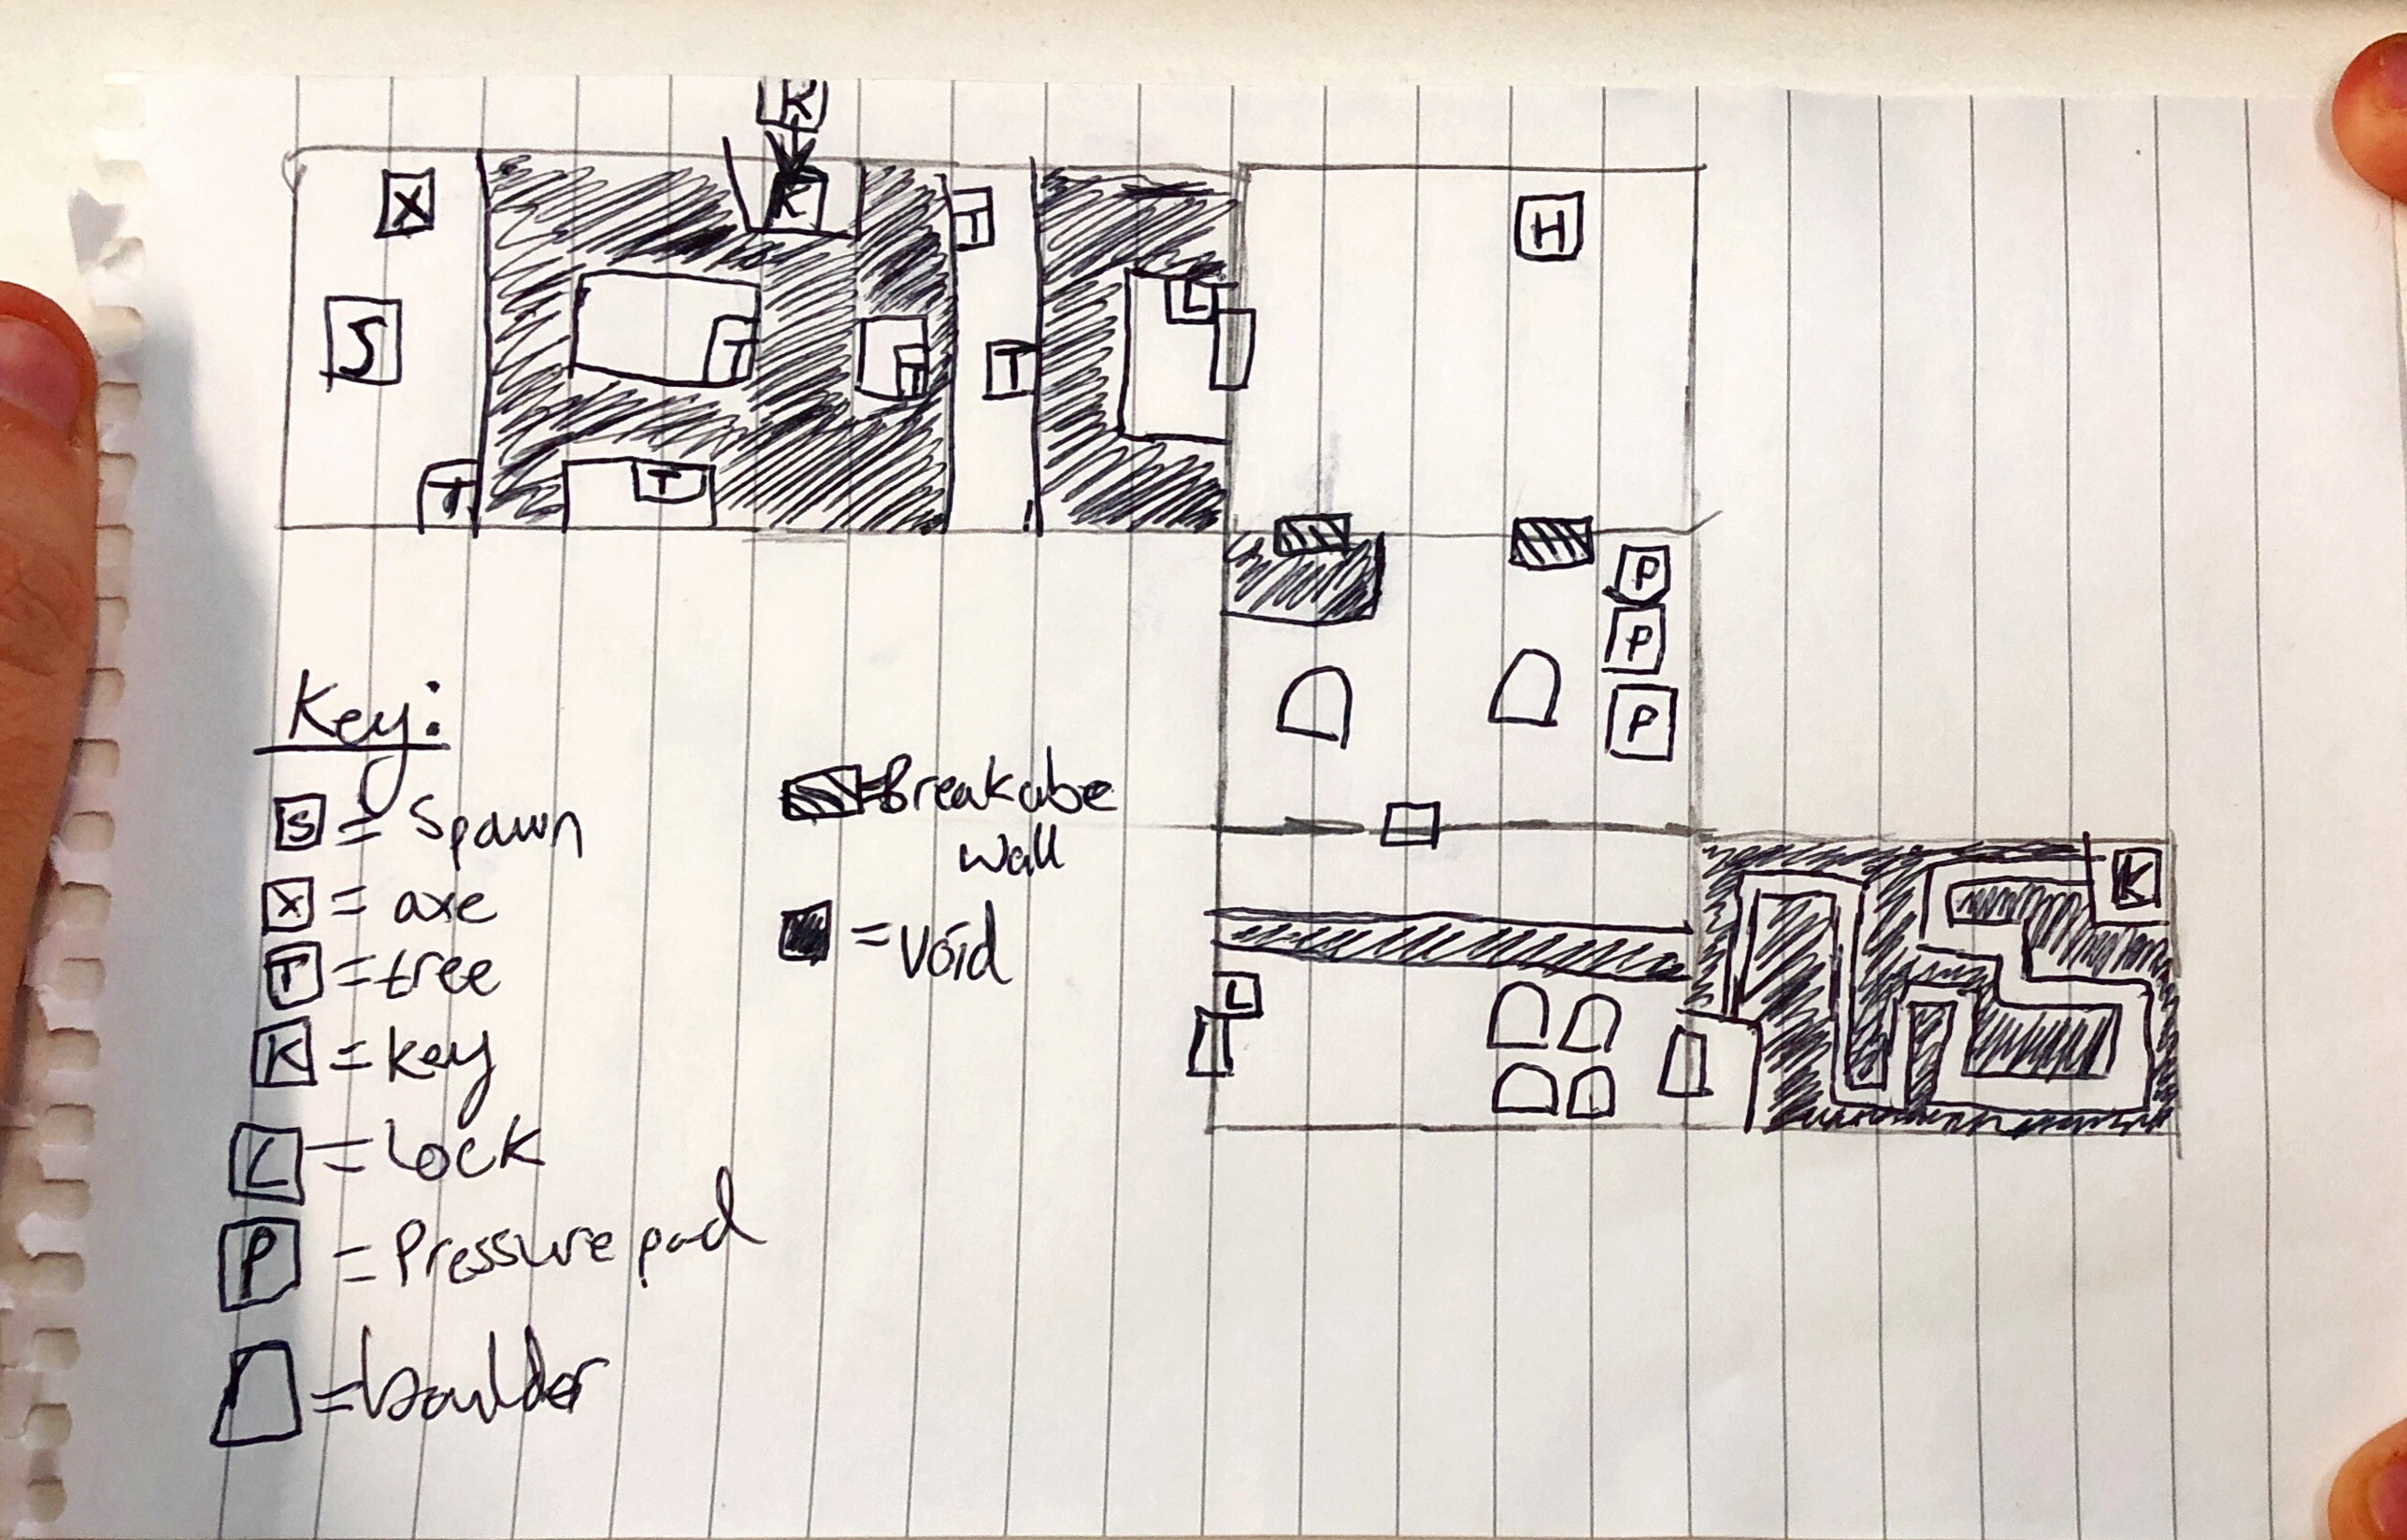 K
K
X
T
H
S
T
T
T
L
T
T
P
P
P
K
L
Key:
S = Spawn
X = axe
T = tree
K = key
L = Lock
P = Pressure pad
= boulder
= Breakabe
wall
= Void